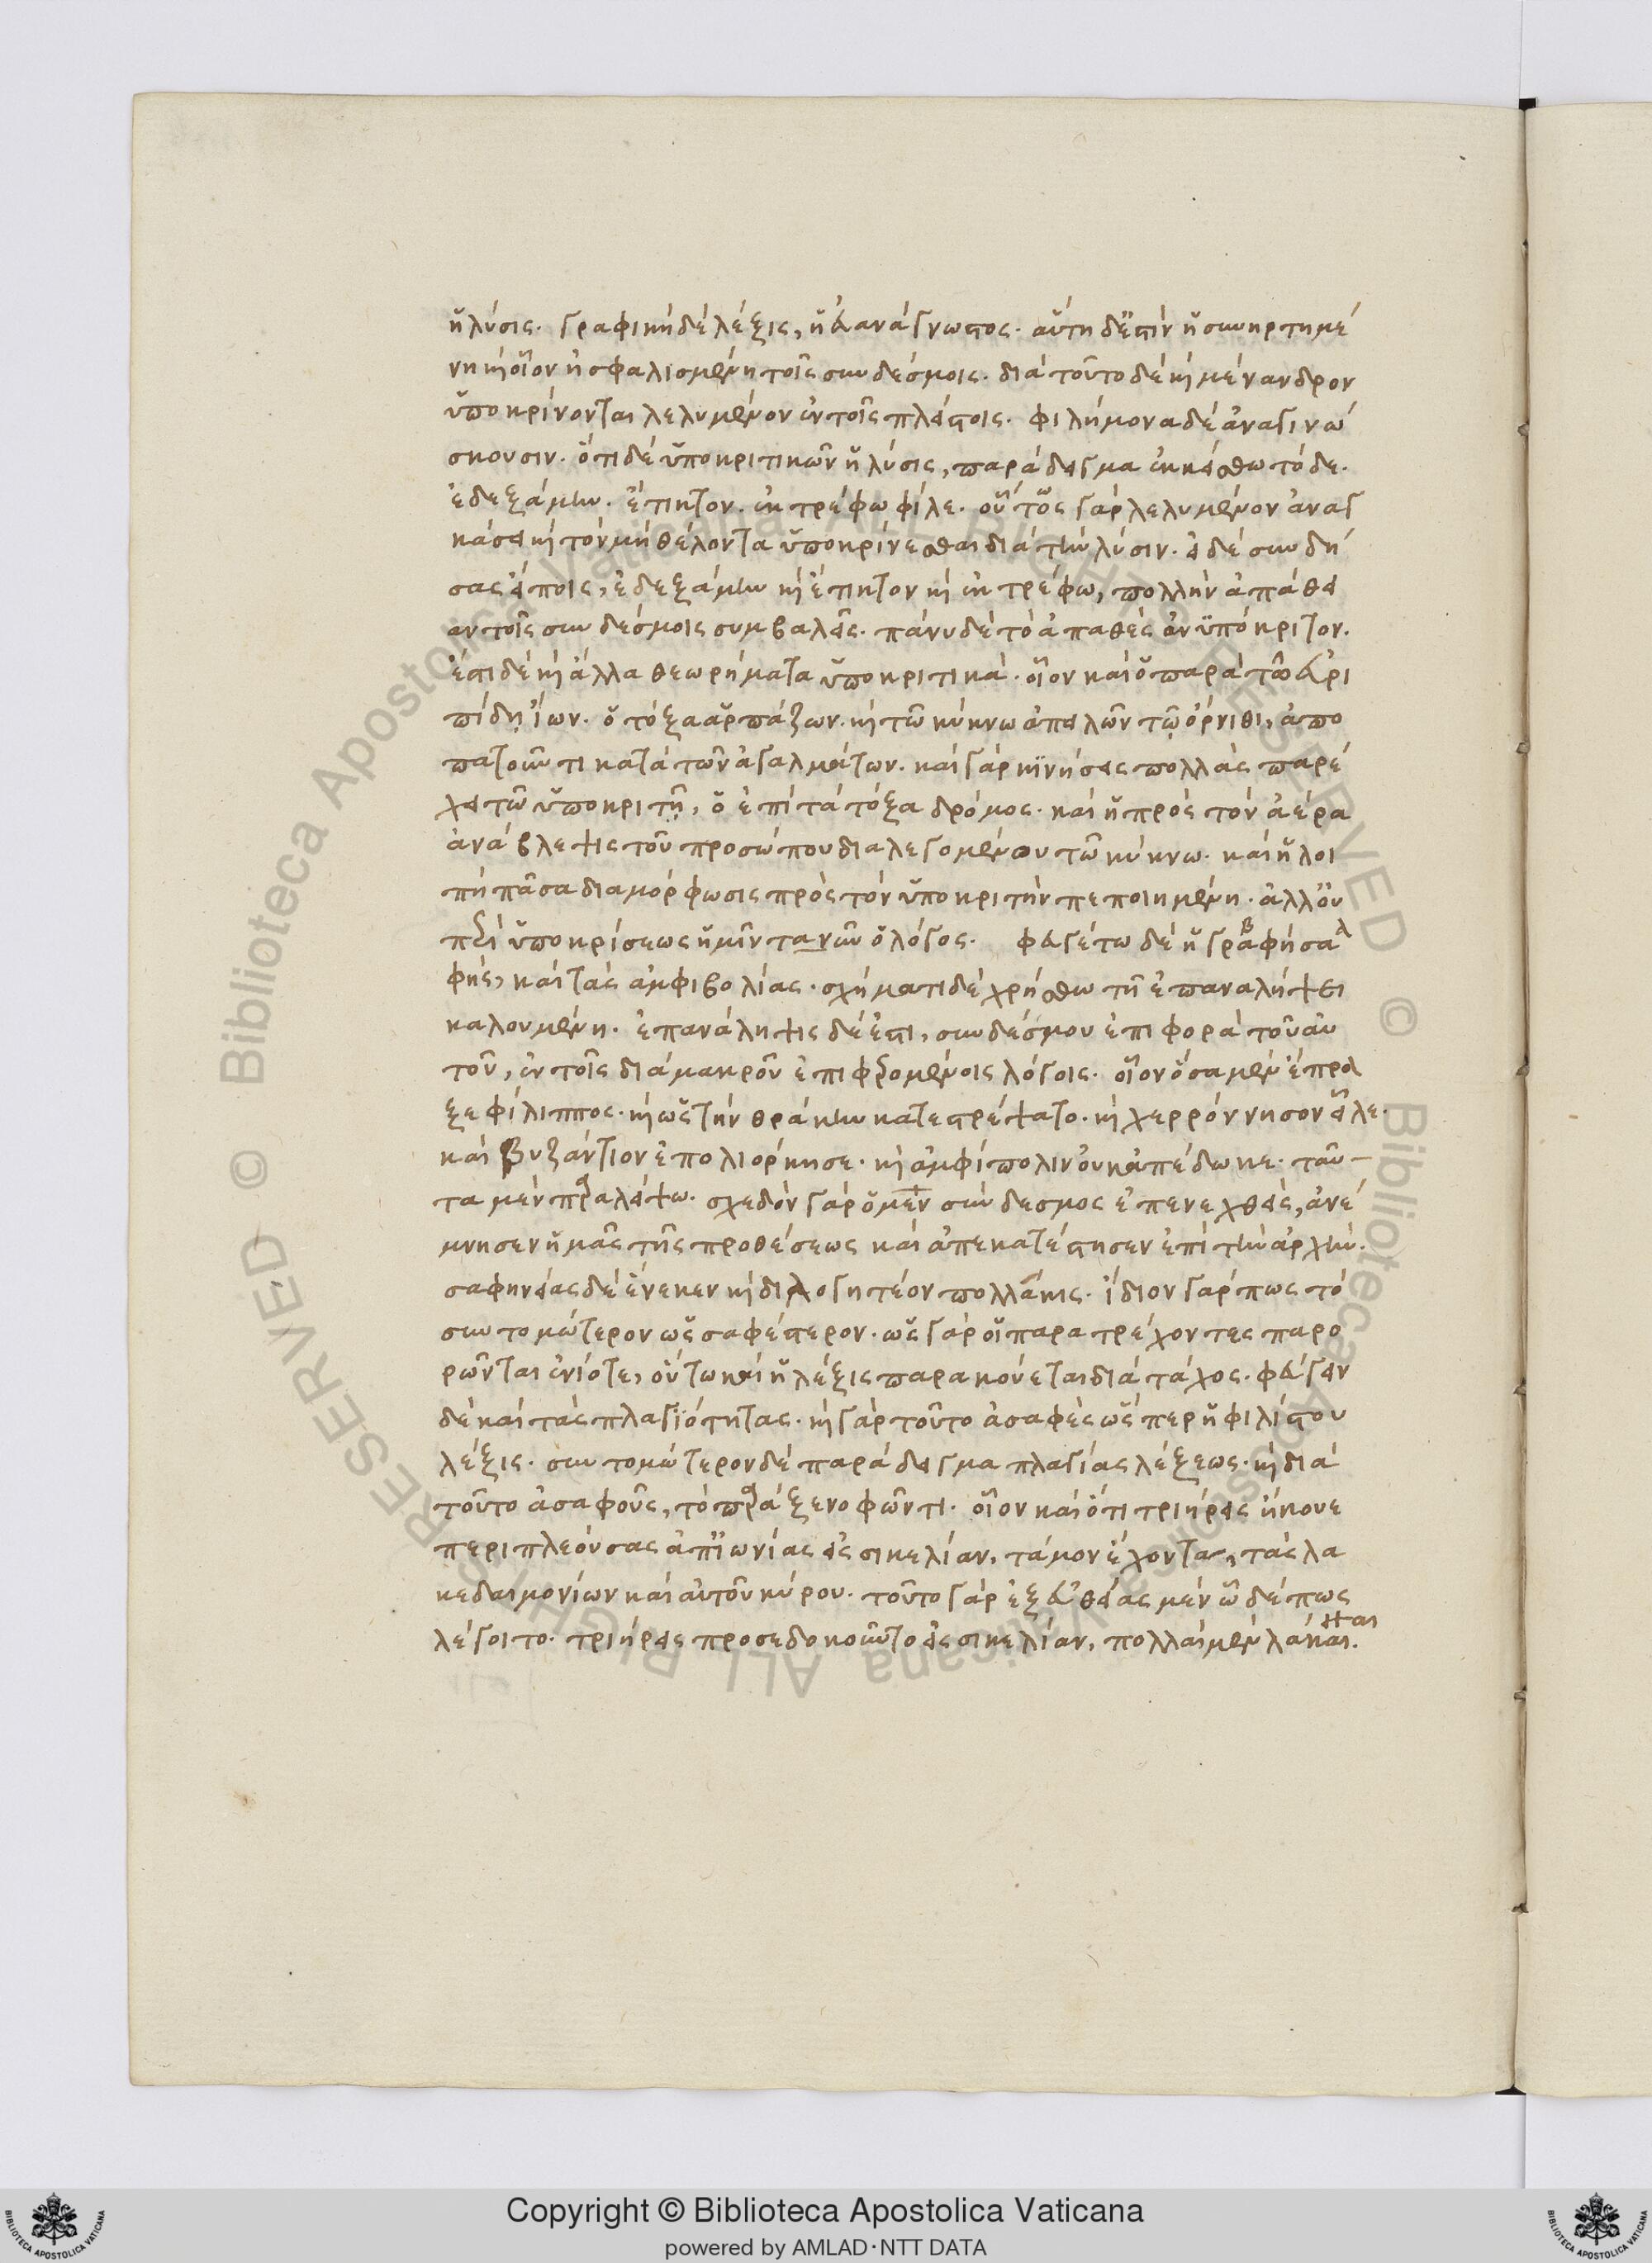 ἡ λύσις. γραφικὴ δὲ λέξις, ἡ εὐανάγνωστος. αὕτη δ' ἐστὶν ἡ συνηρτημέ
νη καὶ οἷον ἠσφαλισμένη τοῖς συνδέσμοις. διὰ τοῦτο δὲ καὶ μένανδρον
ὑποκρίνονται λελυμένον ἐν τοῖς πλείστοις. φιλήμονα δὲ ἀναγινώ
σκουσιν. ὅτι δὲ ὑποκριτικὸν ἡ λύσις, παράδειγμα ἐκκείσθω τόδε.
ἐδεξάμην. ἔτικτον. ἐκτρέφω φίλε. οὕτως γὰρ λελυμένον ἀναγ
κάσει καὶ τὸν μὴ θέλοντα ὑποκρίνεσθαι διὰ τὴν λύσιν. εἰ δὲ συνδή
σας εἴποις, ἐδεξάμην καὶ ἔτικτον καὶ ἐκτρέφω, πολλὴν ἀπάθει
αν τοῖς συνδέσμοις συμβαλεῖς. πάνυ δὲ τὸ ἀπαθὲς ἀνϋπόκριτον.
ἔστι δὲ καὶ ἄλλα θεωρήματα ὑποκριτικά. οἷον καὶ ὁ παρὰ τῷ εὐρι
πίδῃ ἴων. ὁ τόξα ἁρπάζων. καὶ τῷ κύκνω ἀπειλῶν τῷ ὄρνιθι, ἀπο
πατοῦντι κατὰ τῶν ἀγαλμάτων. καὶ γὰρ κινήσεις πολλὰς παρέ
χει τῷ ὑποκριτῇ, ὁ ἐπὶ τὰ τόξα δρόμος. καὶ ἡ πρὸς τὸν ἀέρα
ἀνάβλεψις τοῦ προσώπου διαλεγομένου τῷ κύκνω. καὶ ἡ λοι
πὴ πᾶσα διαμόρφωσις πρὸς τὸν ὑποκριτὴν πεποιημένη. ἀλλ' οὐ
περὶ ὑποκρίσεως ἡμῖν τανῦν ὁ λόγος. φευγέτω δὲ ἡ γραφὴ σα
φής, καὶ τὰς ἀμφιβολίας. σχήματι δὲ χρήσθω τῇ ἐπαναλήψει
καλουμένη. ἐπανάληψις δέ ἐστι, συνδέσμου ἐπιφορὰ τοῦ αὐ
τοῦ, ἐν τοῖς διὰ μακροῦ ἐπιφερομένοις λόγοις. οἷον ὅσα μὲν ἔπρα
ξε φίλιππος. καὶ ὡς τὴν θράκην κατεστρέψατο. καὶ χερρόννησον εἷλε.
καὶ Βυζάντιον ἐπολιόρκησε. καὶ ἀμφίπολιν οὐκ ἀπέδωκε. ταῦ-
τα μὲν παραλείψω. σχεδὸν γὰρ ὁ μὲν σύνδεσμος ἐπενεχθεὶς, ἀνέ
μνησεν ἡμᾶς τῆς προθέσεως καὶ ἀπεκατέστησεν ἐπὶ τὴν ἀρχήν.
σαφηνείας δὲ ἕνεκεν καὶ διλογητέον πολλάκις. ἴδιον γάρ πως τὸ
συντομώτερον ὡς σαφέστερον. ὡς γὰρ οἱ παρατρέχοντες παρο
ρῶνται ἐνίοτε, οὕτω καὶ ἡ λέξις παρακούεται διὰ τάχος. φεύγειν
δὲ καὶ τὰς πλαγϊότητας. καὶ γὰρ τοῦτο ἀσαφὲς ὥσπερ ἡ φιλίστου
λέξις. συντομώτερον δὲ παράδειγμα πλαγίας λέξεως. καὶ διὰ
τοῦτο ἀσαφοῦς, τὸ παρὰ ξενοφῶντι. οἷον καὶ ὅτι τριήρεις ἤκουε
περιπλεούσας ἀπ' ἰωνίας εἰς σικελίαν, τάμον ἔχοντα, τὰς λα
κεδαιμονίων καὶ αὐτοῦ κύρου. τοῦτο γὰρ ἐξ εὐθείας μὲν ὧδέ πως
λέγοιτο. τριήρεις προσεδοκοῦντο εἰς σικελίαν, πολλαὶ μὲν λάκαι.
Copyright © Biblioteca Apostolica Vaticana
powered by AMLAD·NTT DATA